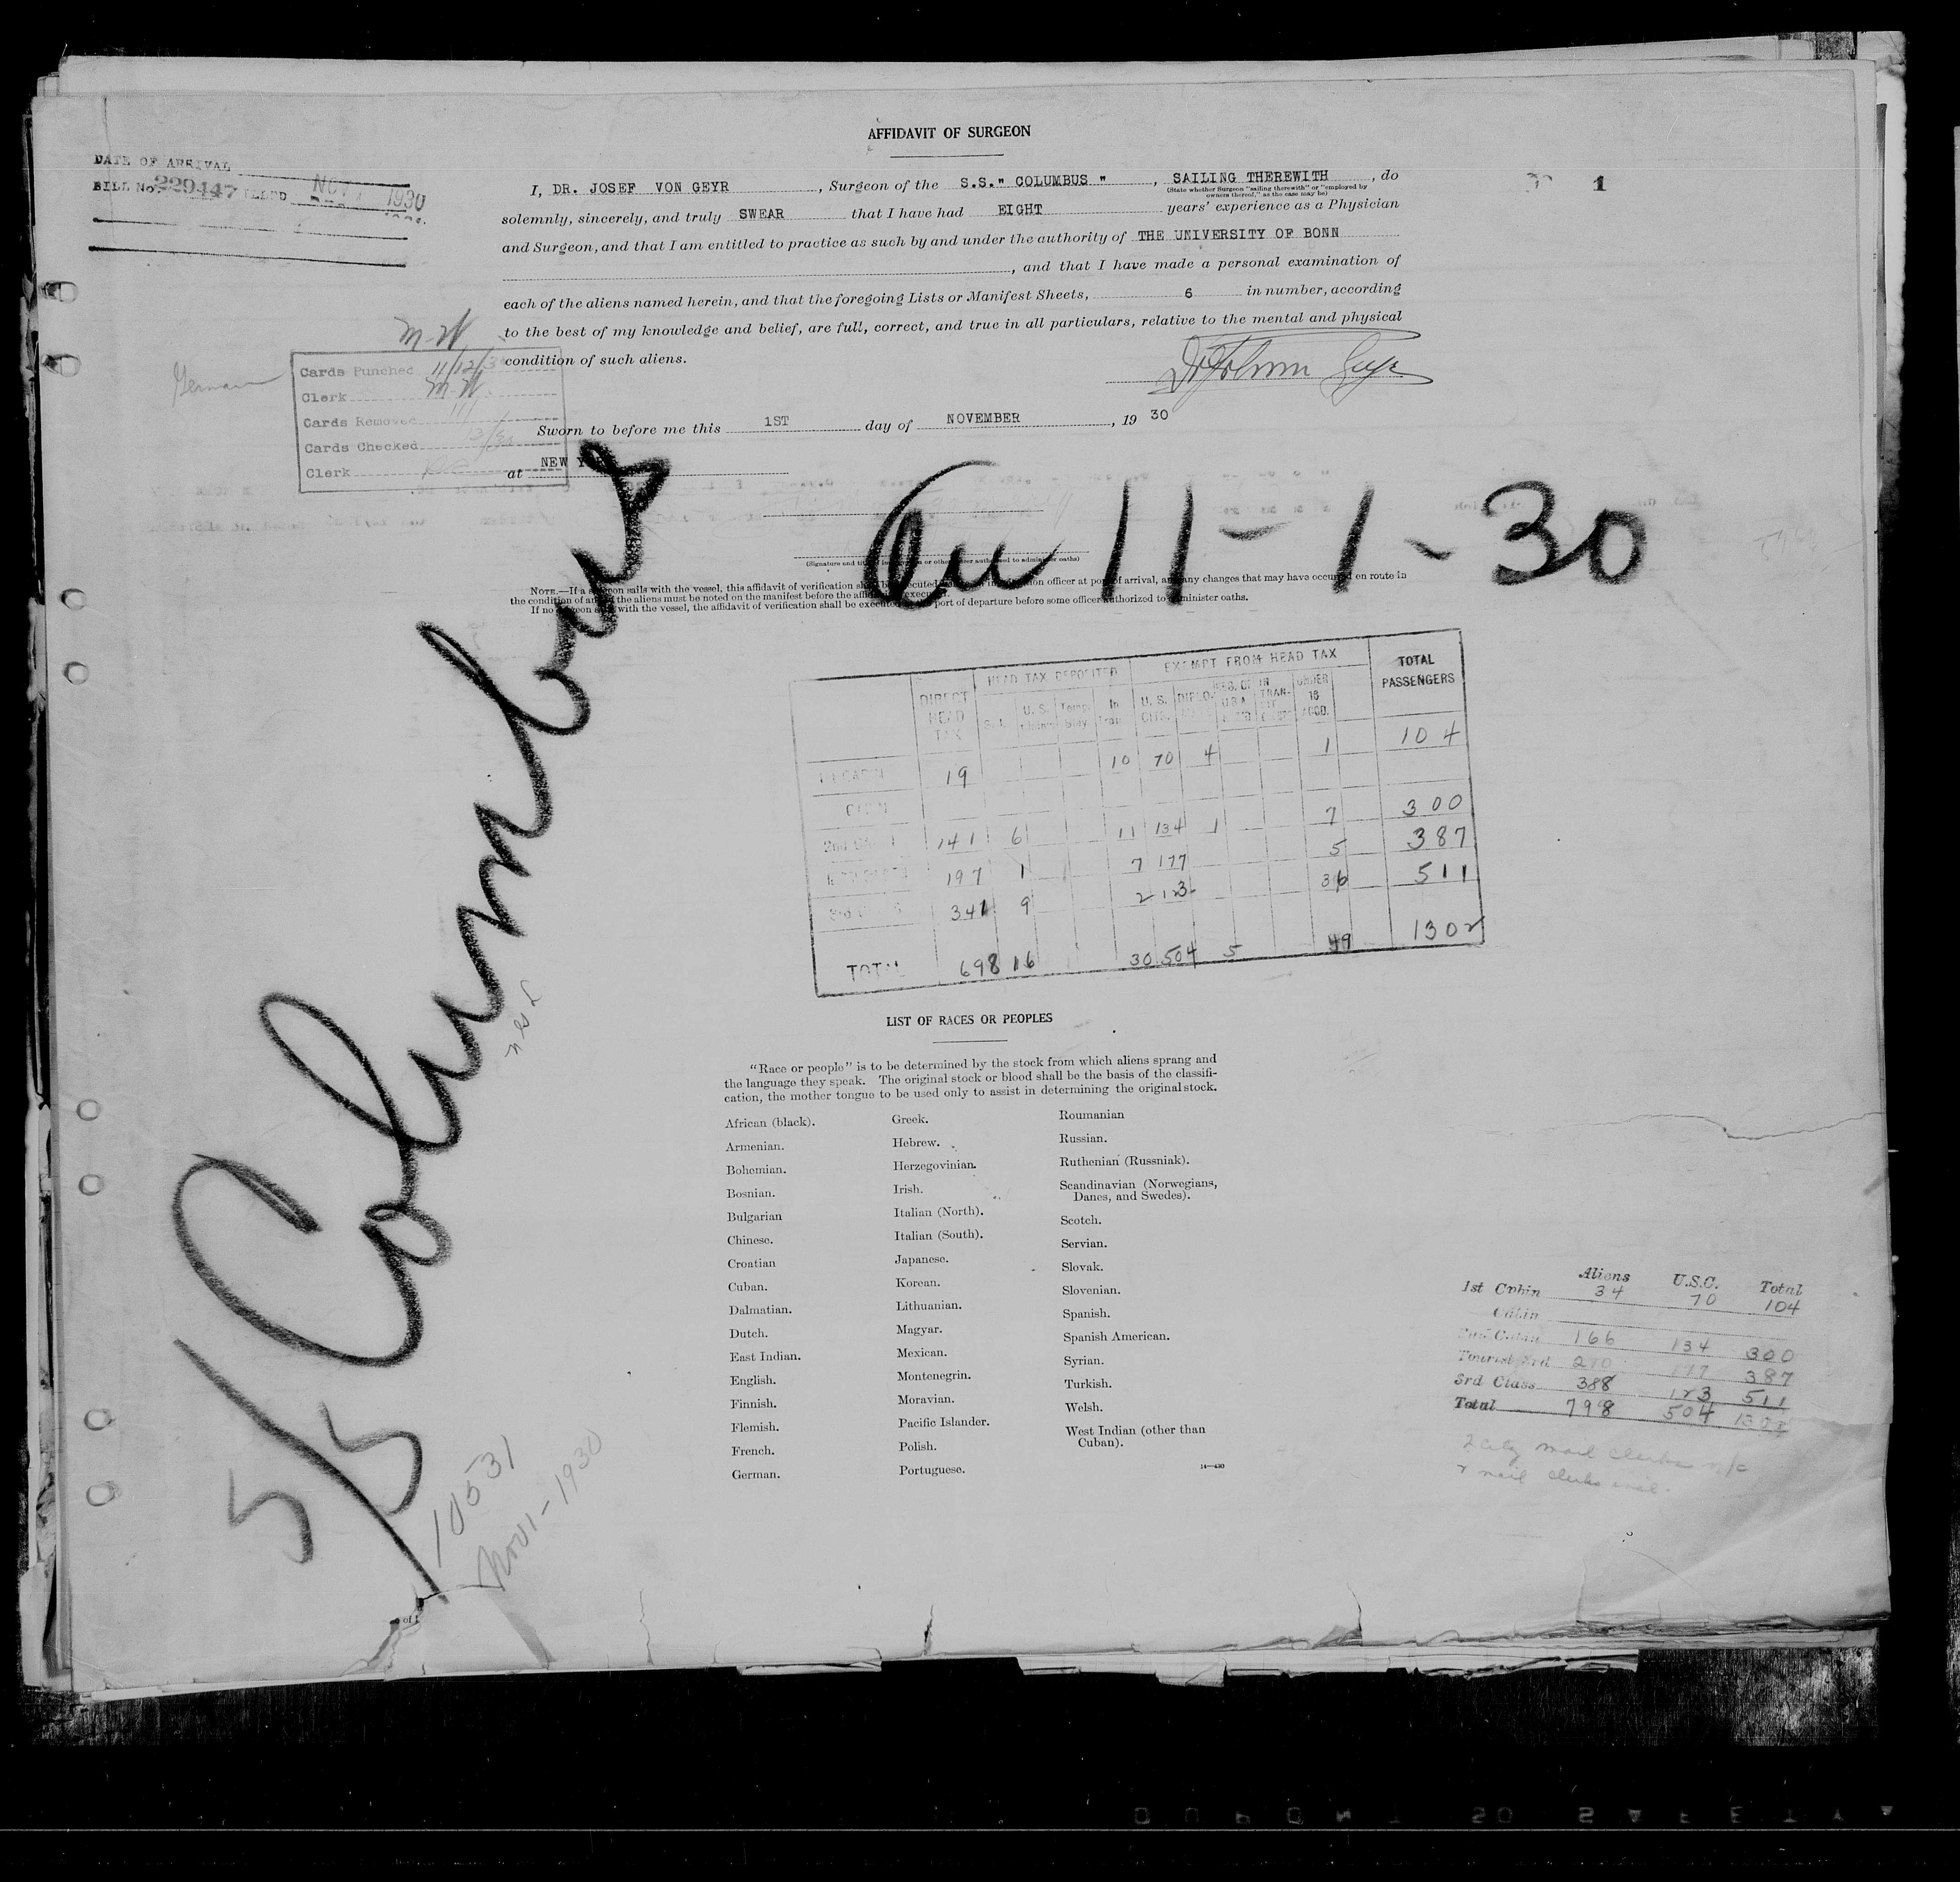 AFFIDAVIT OF SURGEON
DATE OF ARRIVAL
BILL No. 229447 FILLED NOV 1930
1
I, DR. JOSEF VON GEYR, Surgeon of the S.S." COLUMBUS ", SAILING THEREWITH, do
(State whether Surgeon "sailing therewith" or "employed by
owners thereof," as the case may be)
solemnly, sincerely, and truly SWEAR that I have had EIGHT years' experience as a Physician
and Surgeon, and that I am entitled to practice as such by and under the authority of THE UNIVERSITY OF BONN
, and that I have made a personal examination of
each of the aliens named herein, and that the foregoing Lists or Manifest Sheets, 6 in number, according
to the best of my knowledge and belief, are full, correct, and true in all particulars, relative to the mental and physical
condition of such aliens.
German
M.W.
Cards Punched 11/12/3
Clerk M.W.
Cards Removed
Cards Checked
Clerk
Sworn to before me this 1ST day of NOVEMBER, 19 30
at NEW YORK
11-1-30
NOTE.—If a surgeon sails with the vessel, this affidavit of verification shall be executed before an immigration officer at port of arrival, and any changes that may have occurred en route in
the condition of any of the aliens must be noted on the manifest before the affidavit is executed.
If no surgeon sails with the vessel, the affidavit of verification shall be executed at the port of departure before some officer authorized to administer oaths.
S/S Columbus
10531
Nov 1-1930
DIRECT HEAD TAX HEAD TAX DEPOSITED EXEMPT FROM HEAD TAX TOTAL PASSENGERS
U. S. In Tran. U. S. CITZ. DIPLO. IN TRAN- UNDER 16 ACCD.
1st CABIN 19 10 70 4 1 104
CABIN
2nd CABIN 141 6 11 134 1 7 300
197 1 7 177 5 387
3rd CLASS 341 9 2 123 36 511
TOTAL 698 16 30 504 5 49 1302
LIST OF RACES OR PEOPLES
"Race or people" is to be determined by the stock from which aliens sprang and
the language they speak. The original stock or blood shall be the basis of the classifi-
cation, the mother tongue to be used only to assist in determining the original stock.
African (black).
Armenian.
Bohemian.
Bosnian.
Bulgarian
Chinese.
Croatian
Cuban.
Dalmatian.
Dutch.
East Indian.
English.
Finnish.
Flemish.
French.
German.
Greek.
Hebrew.
Herzegovinian.
Irish.
Italian (North).
Italian (South).
Japanese.
Korean.
Lithuanian.
Magyar.
Mexican.
Montenegrin.
Moravian.
Pacific Islander.
Polish.
Portuguese.
Roumanian
Russian.
Ruthenian (Russniak).
Scandinavian (Norwegians,
Danes, and Swedes).
Scotch.
Servian.
Slovak.
Slovenian.
Spanish.
Spanish American.
Syrian.
Turkish.
Welsh.
West Indian (other than
Cuban).
14—430
Aliens U.S.C. Total
1st Cabin 34 70 104
Cabin
2nd Cabin 166 134 300
Tourist 3rd 210 177 387
3rd Class 388 123 511
Total 798 504 1302
mail clerks
mail clerks
DUPONT SO SAFETY